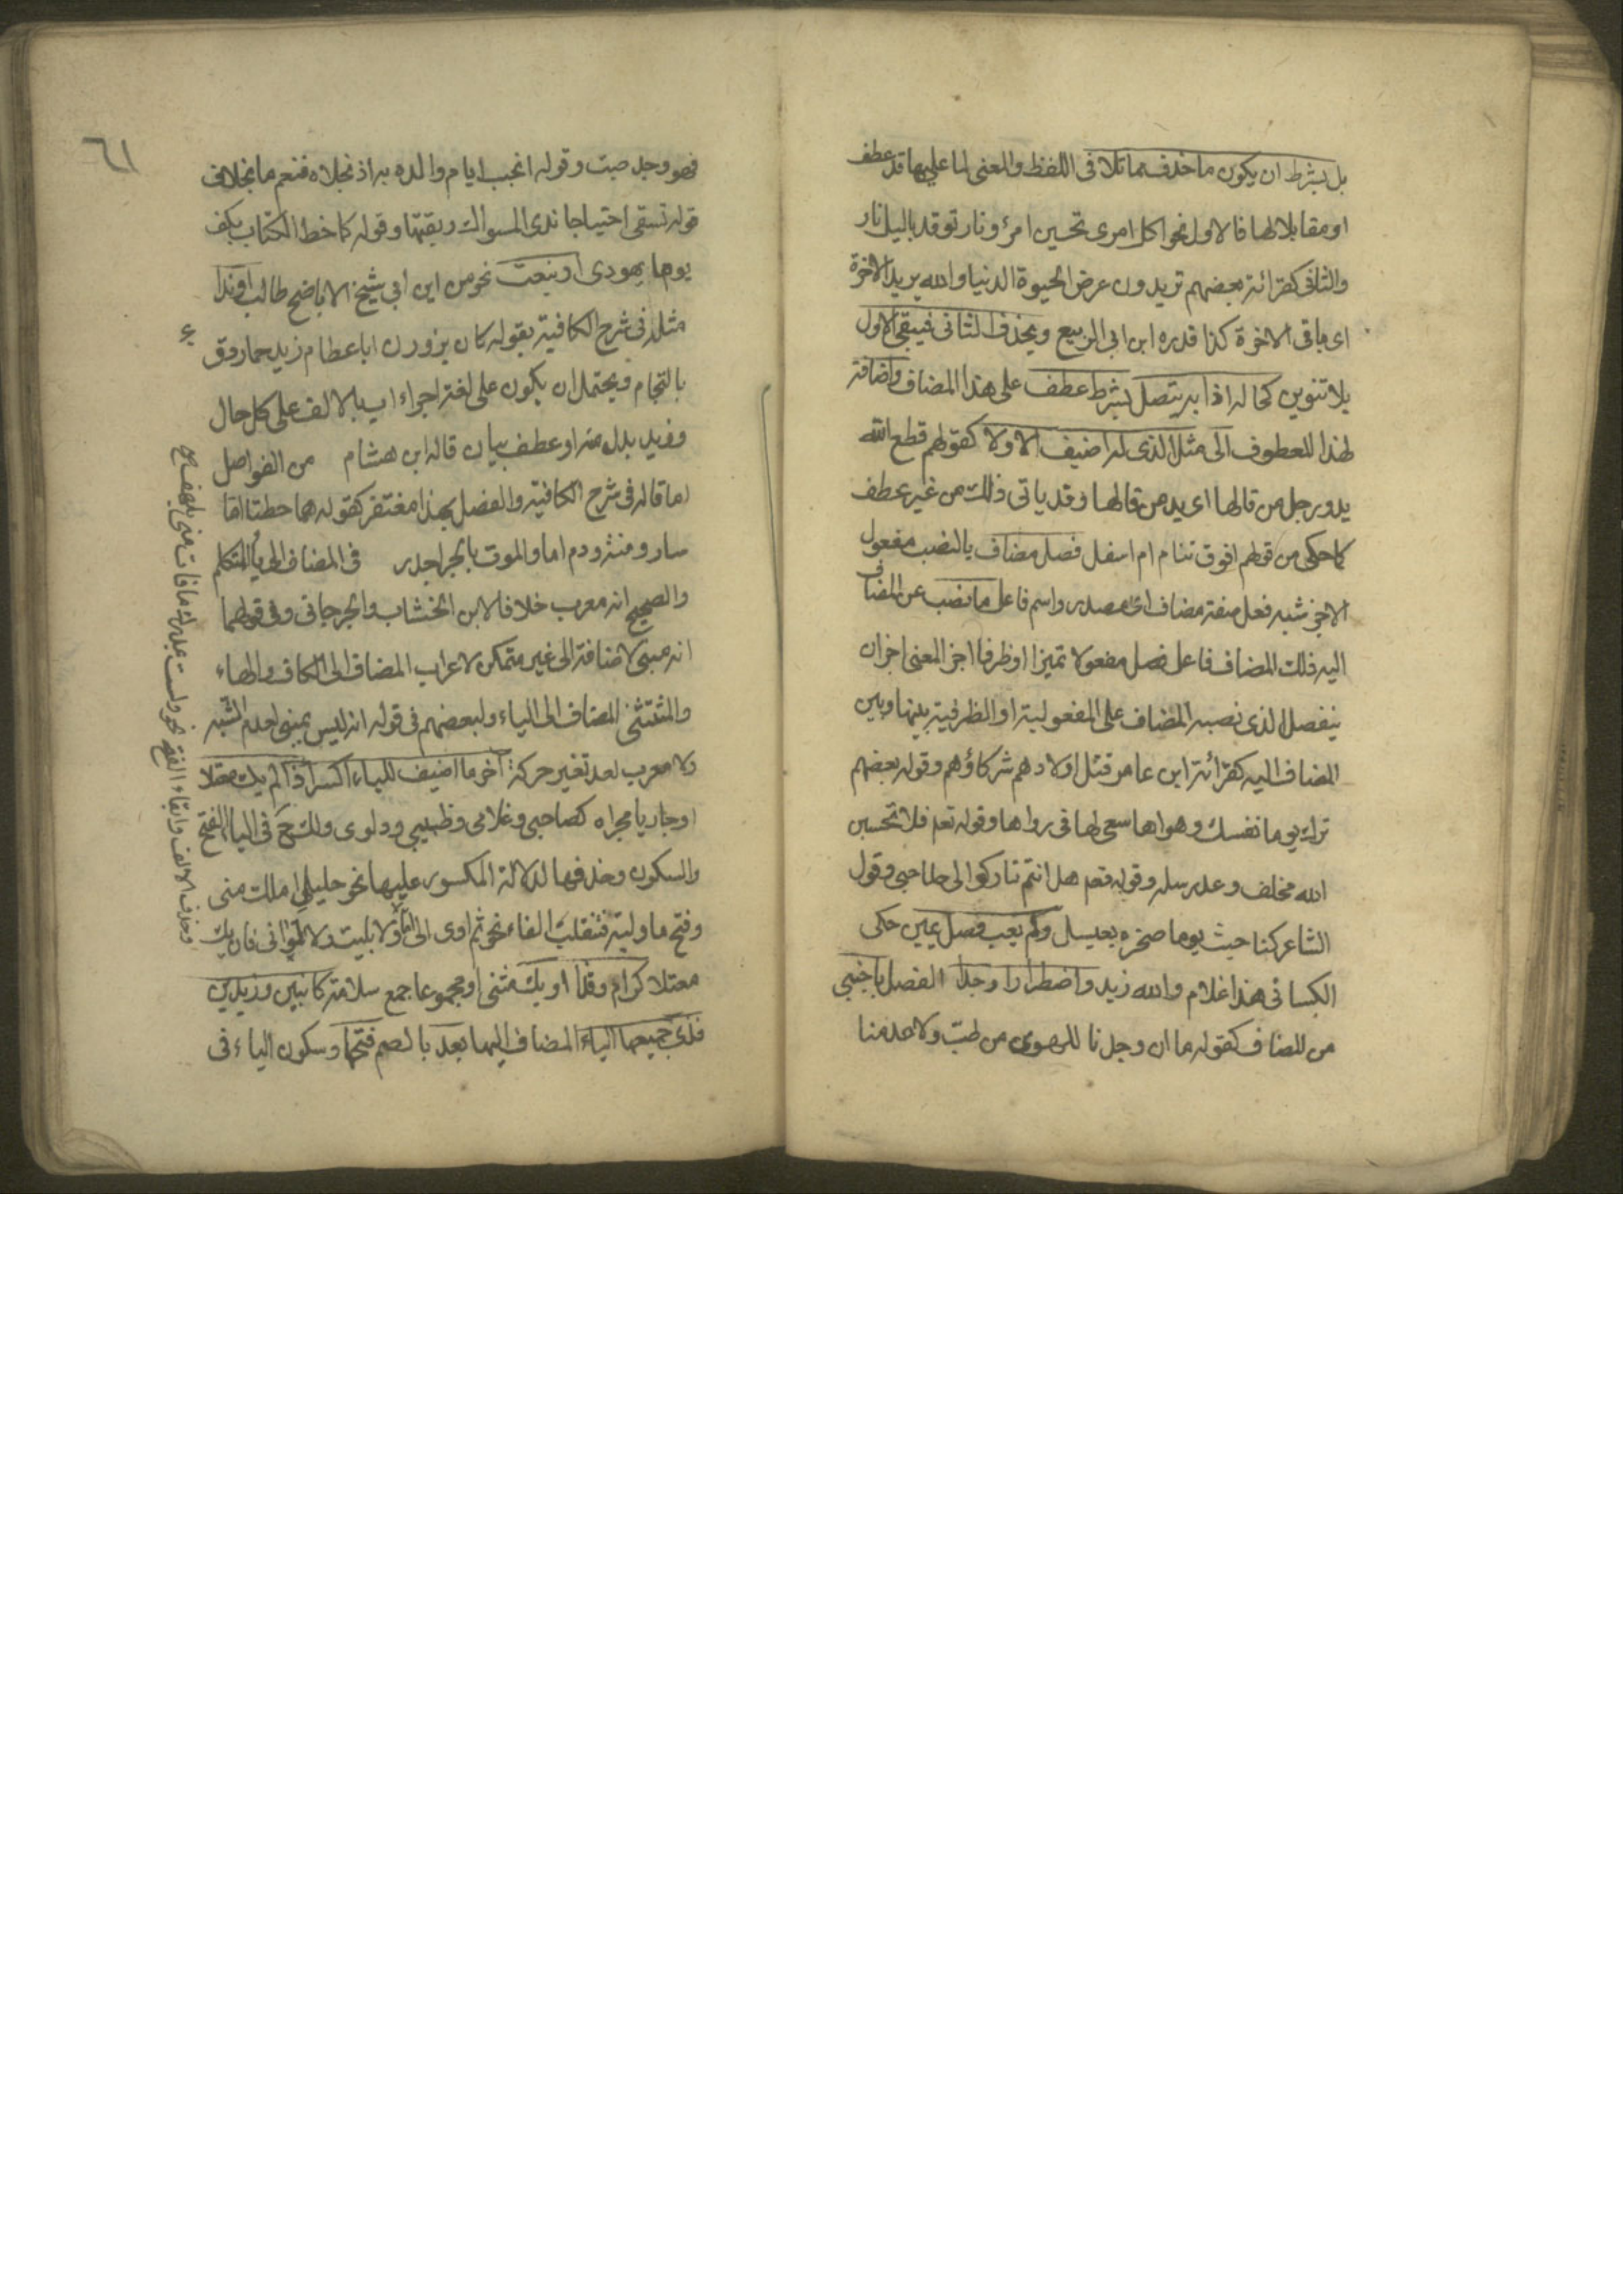 بل بشرط ان يكون ما حذف مماثلا فى اللفظ والمعنى لما عليها قد عطف
او مقابلا لها فالاول نحو اكل امرى تحسبن امرئ ونار توقد بالليل نار
والثانى كقرائة بعضهم تريدون عرض الحيوة الدنيا والله يريد الاخرة
اى باقى الاخرة كذا قدره ابن ابى الربيع ويحذف الثانى فيبقى الاول
بلا تنوين كحاله اذا به يتصل بشرط عطف على هذا المضاف واضافة
لهذا المعطوف الى مثل الذى له اضيف الاولا كقولهم قطع الله
يد ورجل من قالها اى يد من قالها وقد ياتى ذلك من غير عطف
كما حكى من قولهم افوق تنام ام اسفل فصل مضاف بالنصب مفعول
الاجز شبه فعل صفة مضاف اى مصدر واسم فاعل ما نصب عن المضاف
اليه ذلك المضاف فاعل فصل مفعولا تميزا او ظرفا اجز المعنى اجز ان
ينفصل الذى نصبه المضاف على المفعولية او الظرفية بينها وبين
المضاف اليه كقرائة ابن عامر قتل اولادهم شركاؤهم وقول بعضهم
ترك يوما نفسك وهواها سعى لها فى رداها وقوله تعم فلا تحسبن
الله مخلف وعده رسله وقوله صم هل انتم تاركوا لى صاحبى وقول
الشاعر كناحيث يوما صخرة بعسيل ولم يعب فصل يمين حكى
الكسائى هذا غلام والله زيد واضطرارا وجدا الفصل باجنبى
من المضاف كقوله ما ان وجدنا للهوى من طب ولا عدمنا
٦١
قهر وجد صب وقوله انجب ايام والده به اذ نجلاه فنعم ما نجلا فى
قوله تسقى امتياحا ندى المسواك ريقتها وقوله كما خط الكتاب بكف
يوما يهودى او بنعت نحو من ابن ابى شيخ الاباطح طالب او ندا
مثله فى شرح الكافية بقوله كان برذون اباعصام زيد حمار دق
باللجام ويحتمل ان يكون على لغة اجراء اب بالالف على كل حال
وزيد بدل منه او عطف بيان قاله ابن هشام من الفواصل
اما قاله فى شرح الكافية والفصل بهذا مغتفر كقوله هما خطتا اما
سار ومنة ودم اما والموت بالحر اجدر فى المضاف الى ياء المتكلم
والصحيح انه معرب خلافا لابن الخشاب والجرجانى وفى قولهما
انه مبنى لاضافته الى غير متمكن لاعراب المضاف الى الكاف والهاء
والمثنى المضاف الى الياء ولبعضهم فى قوله انه ليس بمبنى لعدم الشبه
ولا معرب لعد تغير حركة آخر ما اضيف للياء اكسر اذا لم يك معتلا
او جاريا مجراه كصاحبى وغلامى وظبيى ودلوى ولك ح فى الياء الفتح
والسكون وحذفها لدلالة المكسور عليها نحو خليل املك منى
وفتح ما وليته فتنقلب الفاء نحو ثم اوى الى امّا ولا بليت ولا لوانى فان يك
معتلا كرام وقذا او يك مثنى او مجموعا جمع سلامة كابنين وزيدين
فذى جميعها الياء المضاف اليها بعد بالضم فتحها وسكون الياء فى
وحذف الالف وابقاء الفتح نحو ولست بمدرك ما فات منى بلهف